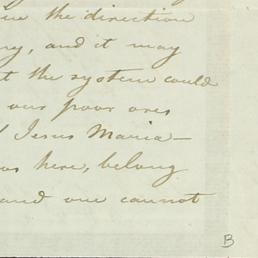 the direction
and it may
the system could
our poor ores
Jesus Maria—
here, belong
and one cannot
B